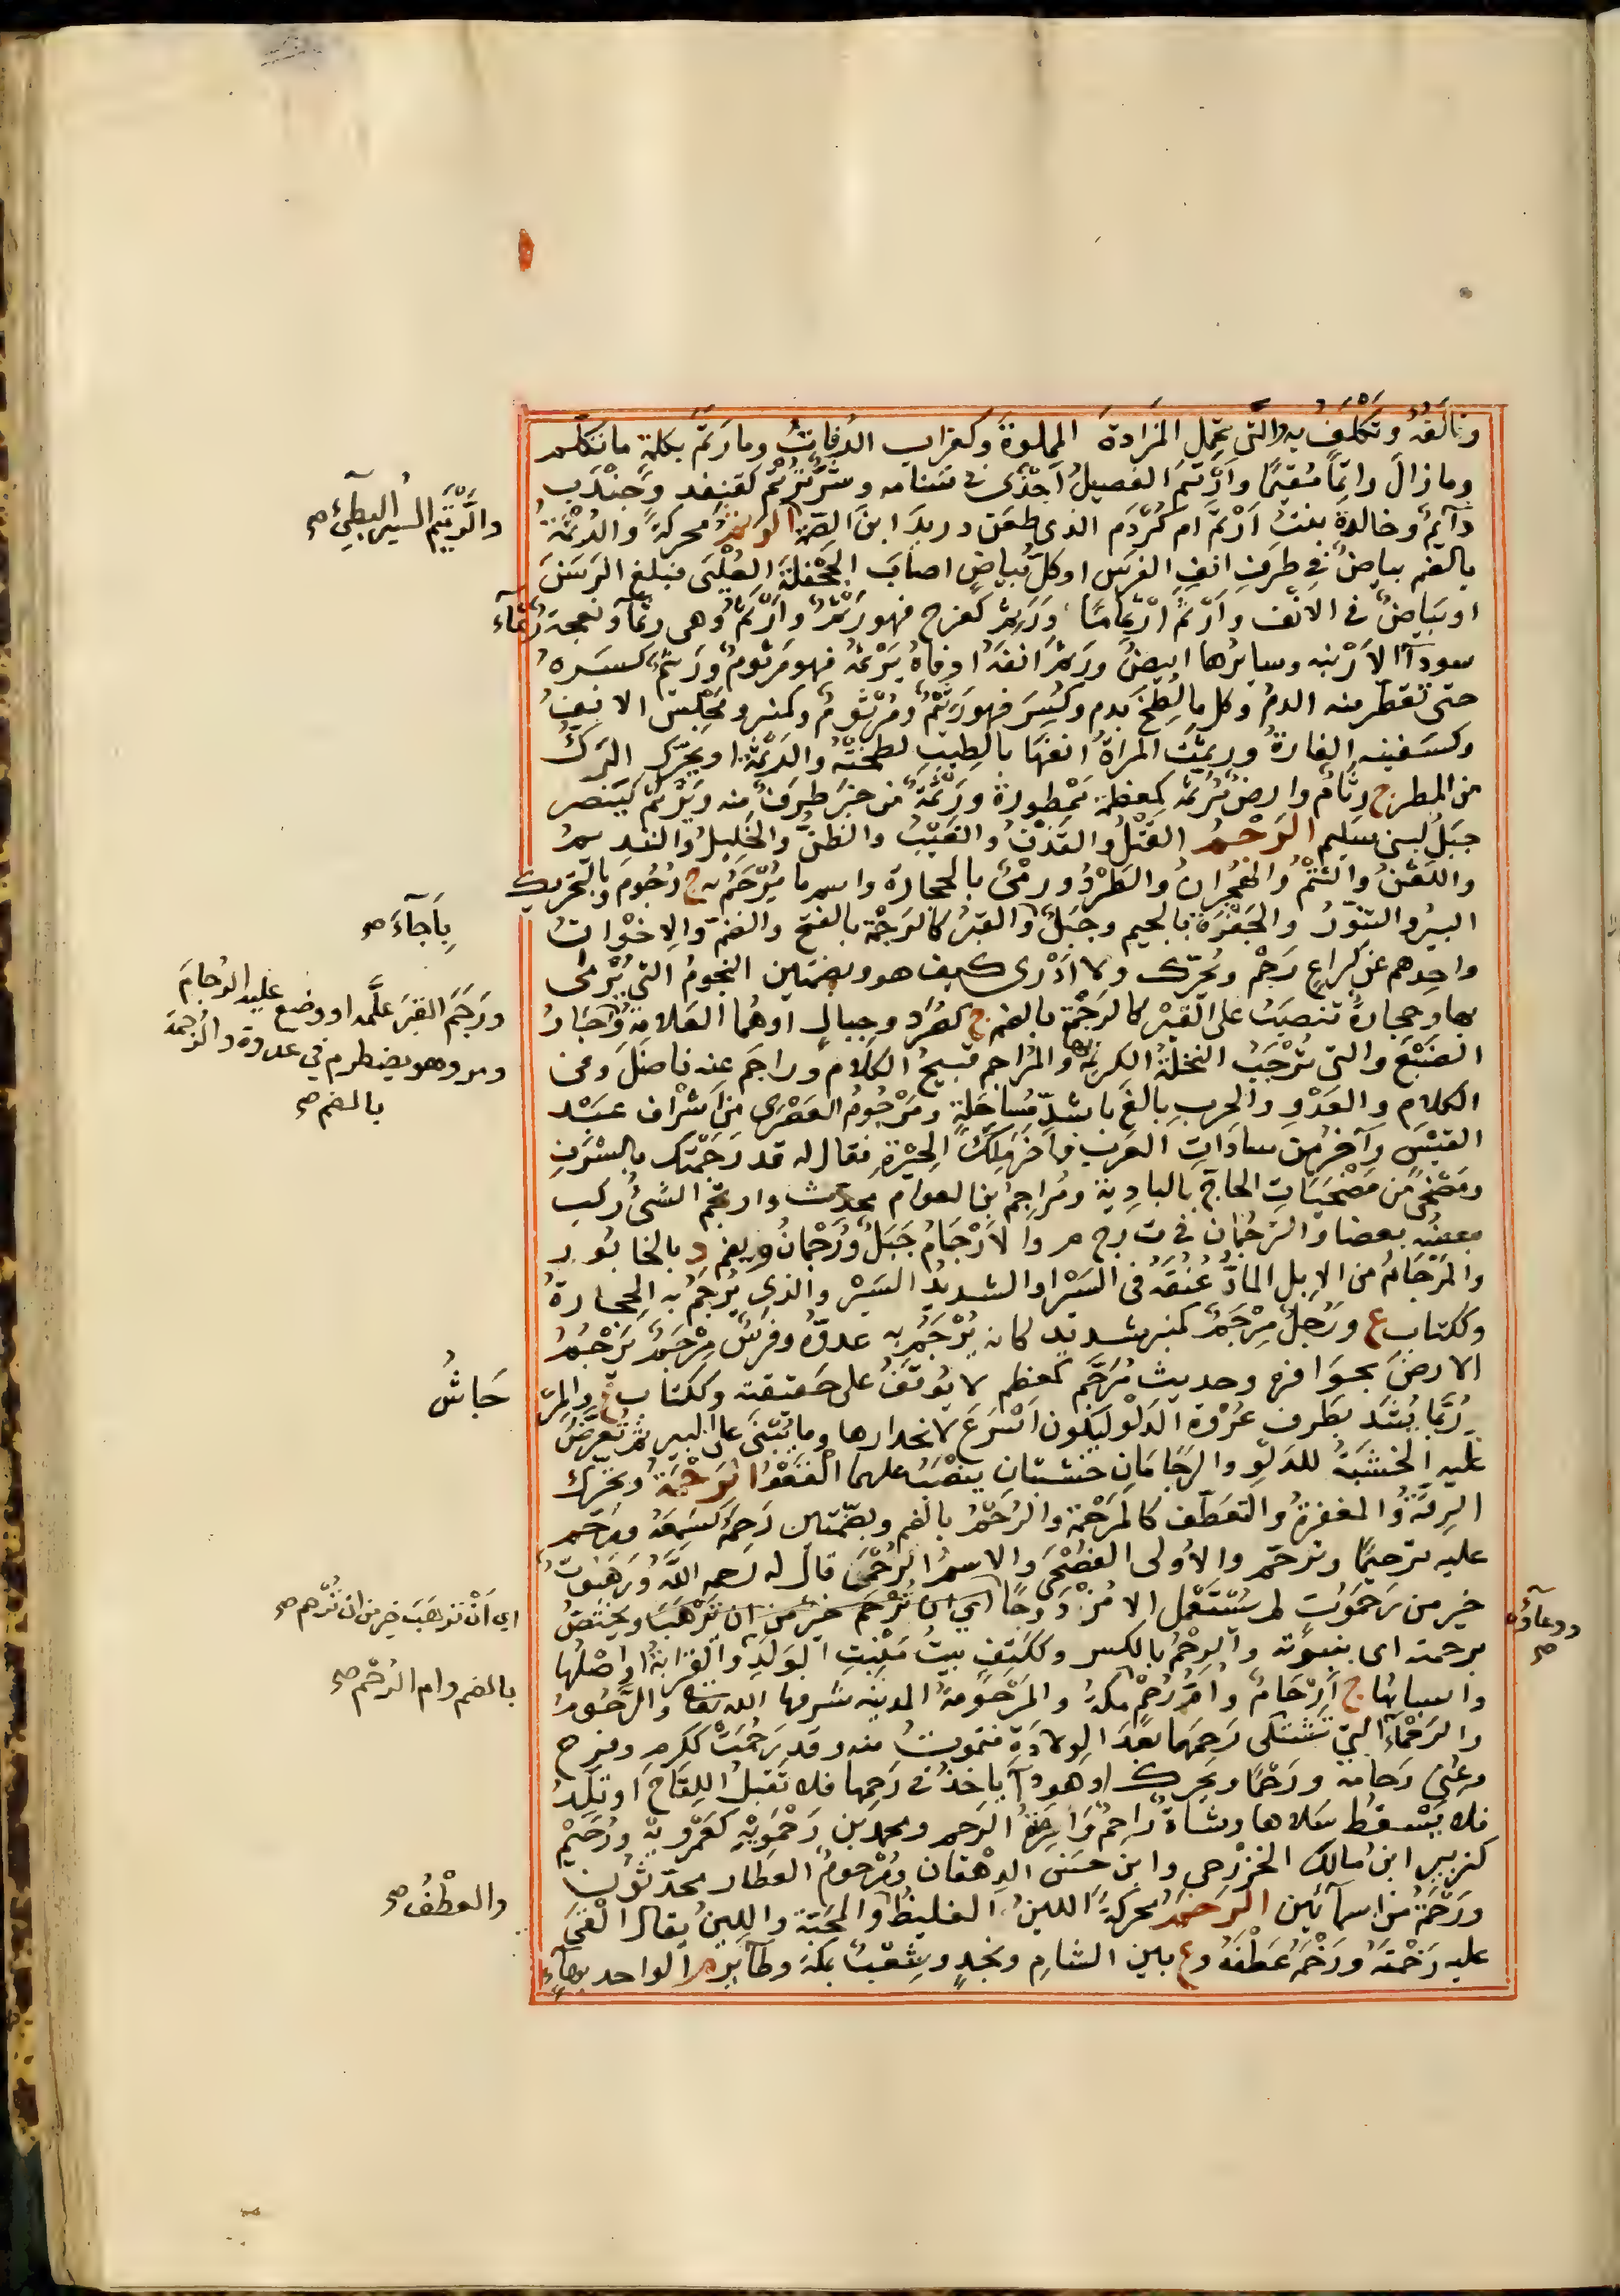 وتألفه وتكلف به والتي تحمل المزادة المملوة وكغراب الرفات وما رتم بكلمة ما تكلم
وما زال راتما مقيما وارتم الفصيل اجذى في سنامه وشر ترتم كقنفذ وجندب
دآيم وخالدة بنت ارتم ام كردم الذي طعن دريد ابن الصمة الرثم محركة والرثمة
والرتيم السير البطيء صح
بالضم بياض في طرف انف الفرس او كل بياض اصاب الجحفلة العليى فبلغ الرسن
او بياض في الانف وارثم ارثماما ورثم كفرح فهو رثم وارثم وهي رثمآ ونعجة رثمآء
سودآ الارنبة وسايرها ابيض ورثم انفه او فاه يرثمه فهو مرثوم ورثيم كسره
حتى تقطر منه الدم وكل ما لطخ بدم وكسر فهو رثيم ومرثوم وكمنبر ومجلس الانف
وكسفينه الفارة ورثمت المراة انفها بالطيب لطخته والرثمة او يحرك الرك
من المطر ج رثام وارض مرثمه كمعظمة ممطورة ورثمة من خبر طرف منه ويرثم كينصر
جبل لبني سليم الرجم القتل والقذف والغيب والظن والخليل والنديم
واللعن والشتم والهجران والطرد ورمى بالحجارة واسم ما يرجم به ج رجوم وبالتحريك
البير والتنور والجفرة بالجيم وجبل والقبر كالرجمة بالفتح والضم والاخوان
بأجآء صح
واحدهم عن كراع رجم ويحرك ولا ادرى كيف هو وبضمتين النجوم التي يرمى
بها وحجارة تنصب على القبر كالرجمة بالضم ج كصرد وجبال او هما العلامة وحجار
ورجم القبر علمه او وضع عليه الرجام
ومر وهو يضطرم في عدوه والرجمة
بالضم صح
الضبع والتي ترجب النخلة الكريمة بها والمراجم قبيح الكلام وراجم عنه ناضل وفي
الكلام والعدو والحرب بالغ باشد مساجلة ومرجوم العصرى من اشراف عبد
القيس وآخر من سادات العرب فاخر ملك الحيرة فقال له قد رجمتك بالشرف
ومضحى من مضحيات الحاج بالبادية ومراجم بن العوام محدث وارتجم الشئ ركب
بعضه بعضا والترجمان في ت ر ج م والارجام جبل ورجمان ويضم د بالخابور
والمرجام من الابل الماد عنقه في السير او الشديد السير والذي يرجم به الحجارة
وككتاب ع ورجل مرجم كمنبر شديد كانه يرجم به عدوه وفرس مرجم يرجم
الارض بحوافره وحديث مرجم كمعظم لا يوقف على حقيقته وككتاب ع والمر
جاش
ربما يشد بطرف عرقوة الدلو ليكون اسرع لانحدارها وما يبنى على البير ثم تعرض
عليه الخشبة للدلو والرجامان خشبتان ينصب عليهما القعو الرحمة ويحرك
الرقة والمغفرة والتعطف كالمرحمة والرحم بالضم وبضمتين رحمه كسمعه ورحم
عليه ترحيما وترحم والاولى الفصحى والاسم الرحمى قال له رحمه الله ورهبوت
خير من رحموت لم يستعمل الا مزدوجا اي ان ترحم خير من ان ترهب ويختص
ودعآؤه صح
اي ان ترهب خير من ان ترحم صح
برحمته اي بنبوته والرحم بالكسر وككتف بيت منبت الولد والقرابة او اصلها
واسبابها ج ارحام وام رحم مكة والمرحومة المدينه شرفها الله تعالى والرحوم
بالضم وام الرحم صح
والرحمآء التي تشتكى رحمها بعد الولادة فتموت منه وقد رحمت ككرم وفرح
وعنى رحامة ورحما ويحرك او هو دآ ياخذ في رحمها فلا تقبل اللقاح او تلد
فلا يسقط سلاها وشاة راحم وارمة الرحم ومحمد بن رحمويه كعمرويه ورحيم
كزبير ابن مالك الخزرجي وابن حسن الدهقان ومرحوم العطار محدثون
ورحمة من اسمآئهن الرخم محركة اللبن الغليظ والمحبة واللين يقال القى
والعطف صح
عليه رخمته ورخمه عطفه وع بين الشام ونجد وشعب بمكة وطآير م الواحد بهآء